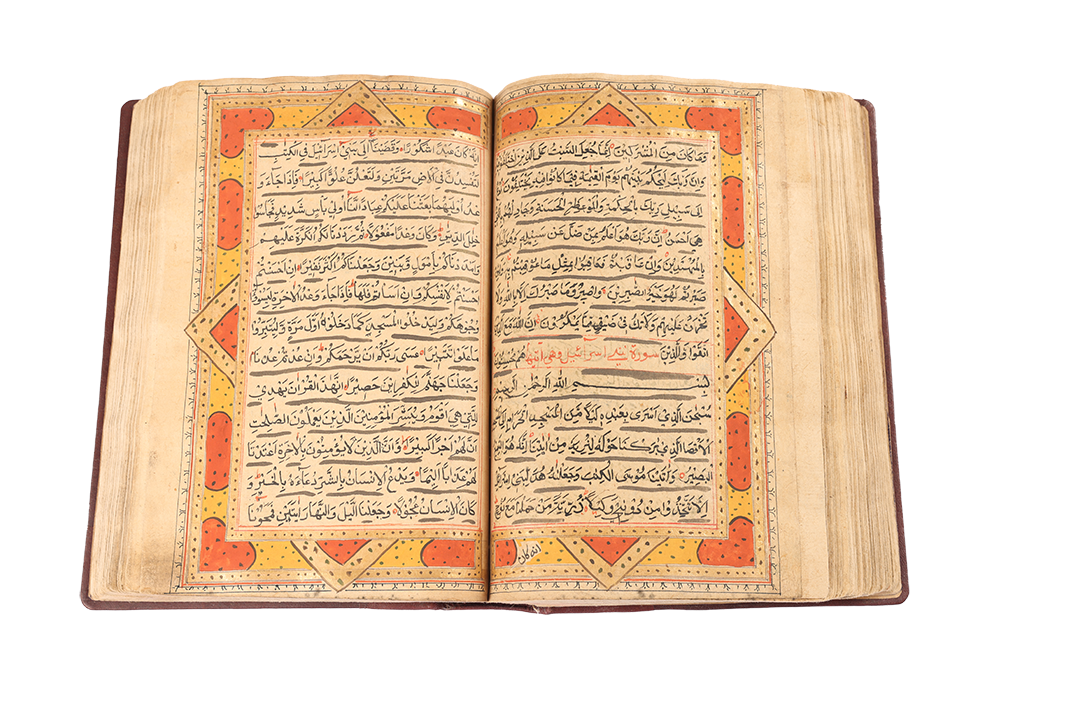 وَمَا كَانَ مِنَ الْمُشْرِكِينَ اِنَّمَا جُعِلَ السَّبْتُ عَلَى الَّذِينَ اخْتَلَفُوا
وَاِنَّ رَبَّكَ لَيَحْكُمُ بَيْنَهُمْ يَوْمَ الْقِيٰمَةِ فِيمَا كَانُوا فِيهِ يَخْتَلِفُونَ
اِلٰى سَبِيلِ رَبِّكَ بِالْحِكْمَةِ وَالْمَوْعِظَةِ الْحَسَنَةِ وَجَادِلْهُمْ
هِيَ اَحْسَنُ اِنَّ رَبَّكَ هُوَ اَعْلَمُ بِمَنْ ضَلَّ عَنْ سَبِيلِهِ وَهُوَ
بِالْمُهْتَدِينَ وَاِنْ عَاقَبْتُمْ فَعَاقِبُوا بِمِثْلِ مَا عُوقِبْتُمْ بِهِ
صَبَرْتُمْ لَهُوَ خَيْرٌ لِلصّٰبِرِينَ وَاصْبِرْ وَمَا صَبْرُكَ اِلَّا بِاللّٰهِ وَلَا
تَحْزَنْ عَلَيْهِمْ وَلَا تَكُ فِي ضَيْقٍ مِمَّا يَمْكُرُونَ اِنَّ اللّٰهَ مَعَ
اتَّقَوْا وَالَّذِينَ سورة بني اسرائيل هُمْ مُحْسِنُونَ
بِسْمِ اللّٰهِ الرَّحْمٰنِ الرَّحِيمِ
سُبْحٰنَ الَّذِي اَسْرٰى بِعَبْدِهِ لَيْلًا مِنَ الْمَسْجِدِ الْحَرَامِ اِلَى
الْاَقْصَا الَّذِي بٰرَكْنَا حَوْلَهُ لِنُرِيَهُ مِنْ اٰيٰتِنَا اِنَّهُ هُوَ
الْبَصِيرُ وَاٰتَيْنَا مُوسَى الْكِتٰبَ وَجَعَلْنٰهُ هُدًى لِبَنِي
اَلَّا تَتَّخِذُوا مِنْ دُونِي وَكِيلًا ذُرِّيَّةَ مَنْ حَمَلْنَا مَعَ نُوحٍ
انه كان
اِنَّهُ كَانَ عَبْدًا شَكُورًا وَقَضَيْنَا اِلٰى بَنِي اِسْرَائِيلَ فِي الْكِتٰبِ
لَتُفْسِدُنَّ فِي الْاَرْضِ مَرَّتَيْنِ وَلَتَعْلُنَّ عُلُوًّا كَبِيرًا فَاِذَا جَاءَ وَ
عْدُ اُولٰيهُمَا بَعَثْنَا عَلَيْكُمْ عِبَادًا لَنَا اُولِي بَأْسٍ شَدِيدٍ فَجَاسُوا
خِلٰلَ الدِّيَارِ وَكَانَ وَعْدًا مَفْعُولًا ثُمَّ رَدَدْنَا لَكُمُ الْكَرَّةَ عَلَيْهِمْ
وَاَمْدَدْنٰكُمْ بِاَمْوَالٍ وَبَنِينَ وَجَعَلْنٰكُمْ اَكْثَرَ نَفِيرًا اِنْ اَحْسَنْتُمْ
اَحْسَنْتُمْ لِاَنْفُسِكُمْ وَاِنْ اَسَأْتُمْ فَلَهَا فَاِذَا جَاءَ وَعْدُ الْاٰخِرَةِ لِيَسُوءُوا
وُجُوهَكُمْ وَلِيَدْخُلُوا الْمَسْجِدَ كَمَا دَخَلُوهُ اَوَّلَ مَرَّةٍ وَلِيُتَبِّرُوا
مَا عَلَوْا تَتْبِيرًا عَسٰى رَبُّكُمْ اَنْ يَرْحَمَكُمْ وَاِنْ عُدْتُمْ عُدْنَا
وَجَعَلْنَا جَهَنَّمَ لِلْكٰفِرِينَ حَصِيرًا اِنَّ هٰذَا الْقُرْاٰنَ يَهْدِي
لِلَّتِي هِيَ اَقْوَمُ وَيُبَشِّرُ الْمُؤْمِنِينَ الَّذِينَ يَعْمَلُونَ الصّٰلِحٰتِ
اَنَّ لَهُمْ اَجْرًا كَبِيرًا وَاَنَّ الَّذِينَ لَا يُؤْمِنُونَ بِالْاٰخِرَةِ اَعْتَدْنَا
لَهُمْ عَذَابًا اَلِيمًا وَيَدْعُ الْاِنْسَانُ بِالشَّرِّ دُعَاءَهُ بِالْخَيْرِ وَ
كَانَ الْاِنْسَانُ عَجُولًا وَجَعَلْنَا الَّيْلَ وَالنَّهَارَ اٰيَتَيْنِ فَمَحَوْنَا